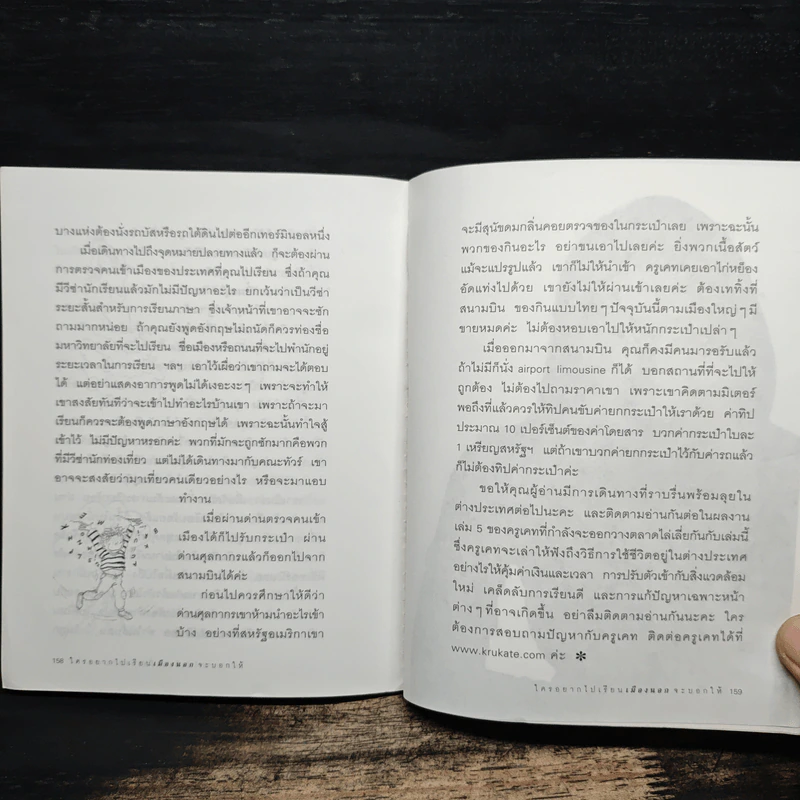 บางแห่งต้องนั่งรถบัสหรือรถใต้ดินไปต่ออีกเทอร์มินอลหนึ่ง
เมื่อเดินทางไปถึงจุดหมายปลายทางแล้ว ก็จะต้องผ่าน
การตรวจคนเข้าเมืองของประเทศที่คุณไปเรียน ซึ่งถ้าคุณ
มีวีซ่านักเรียนแล้วมักไม่มีปัญหาอะไร ยกเว้นว่าเป็นวีซ่า
ระยะสั้นสำหรับการเรียนภาษา ซึ่งเจ้าหน้าที่เขาอาจจะซัก
ถามมากหน่อย ถ้าคุณยังพูดอังกฤษไม่ถนัดก็ควรท่องชื่อ
มหาวิทยาลัยที่จะไปเรียน ชื่อเมืองหรือถนนที่จะไปพำนักอยู่
ระยะเวลาในการเรียน ฯลฯ เอาไว้เผื่อว่าเขาถามจะได้ตอบ
ได้ แต่อย่าแสดงอาการพูดไม่ได้เงอะงะๆ เพราะจะทำให้
เขาสงสัยทันทีว่าจะเข้าไปทำอะไรบ้านเขา เพราะถ้าจะมา
เรียนก็ควรจะต้องพูดภาษาอังกฤษได้ เพราะฉะนั้นทำใจสู้
เข้าไว้ ไม่มีปัญหาหรอกค่ะ พวกที่มักจะถูกซักมากคือพวก
ที่มีวีซ่านักท่องเที่ยว แต่ไม่ได้เดินทางมากับคณะทัวร์ เขา
อาจจะสงสัยว่ามาเที่ยวคนเดียวอย่างไร หรือจะมาแอบ
ทำงาน
เมื่อผ่านด่านตรวจคนเข้า
เมืองได้ก็ไปรับกระเป๋า ผ่าน
ด่านศุลกากรแล้วก็ออกไปจาก
สนามบินได้ค่ะ
ก่อนไปควรศึกษาให้ดีว่า
ด่านศุลกากรเขาห้ามนำอะไรเข้า
บ้าง อย่างที่สหรัฐอเมริกาเขา
158 ใครอยากไปเรียนเมืองนอก จะบอกให้
จะมีสุนัขดมกลิ่นคอยตรวจของในกระเป๋าเลย เพราะฉะนั้น
พวกของกินอะไร อย่าขนเอาไปเลยค่ะ ยิ่งพวกเนื้อสัตว์
แม้จะแปรรูปแล้ว เขาก็ไม่ให้นำเข้า ครูเคทเคยเอาไก่หย็อง
อัดแท่งไปด้วย เขายังไม่ให้ผ่านเข้าเลยค่ะ ต้องเททิ้งที่
สนามบิน ของกินแบบไทยๆ ปัจจุบันนี้ตามเมืองใหญ่ๆ มี
ขายหมดค่ะ ไม่ต้องหอบเอาไปให้หนักกระเป๋าเปล่าๆ
เมื่อออกมาจากสนามบิน คุณก็คงมีคนมารอรับแล้ว
ถ้าไม่มีก็นั่ง airport limousine ก็ได้ บอกสถานที่ที่จะไปให้
ถูกต้อง ไม่ต้องไปถามราคาเขา เพราะเขาคิดตามมิเตอร์
พอถึงที่แล้วควรให้ทิปคนขับค่ายกกระเป๋าให้เราด้วย ค่าทิป
ประมาณ 10 เปอร์เซ็นต์ของค่าโดยสาร บวกค่ากระเป๋าใบละ
1 เหรียญสหรัฐฯ แต่ถ้าเขาบวกค่ายกกระเป๋าไว้กับค่ารถแล้ว
ก็ไม่ต้องทิปค่ากระเป๋าค่ะ
ขอให้คุณผู้อ่านมีการเดินทางที่ราบรื่นพร้อมลุยใน
ต่างประเทศต่อไปนะคะ และติดตามอ่านกันต่อในผลงาน
เล่ม 5 ของครูเคทที่กำลังจะออกวางตลาดไล่เลี่ยกันกับเล่มนี้
ซึ่งครูเคทจะเล่าให้ฟังถึงวิธีการใช้ชีวิตอยู่ในต่างประเทศ
อย่างไรให้คุ้มค่าเงินและเวลา การปรับตัวเข้ากับสิ่งแวดล้อม
ใหม่ เคล็ดลับการเรียนดี และการแก้ปัญหาเฉพาะหน้า
ต่างๆ ที่อาจเกิดขึ้น อย่าลืมติดตามอ่านกันนะคะ ใคร
ต้องการสอบถามปัญหากับครูเคท ติดต่อครูเคทได้ที่
www.krukate.com ค่ะ ✻
ใครอยากไปเรียนเมืองนอก จะบอกให้ 159